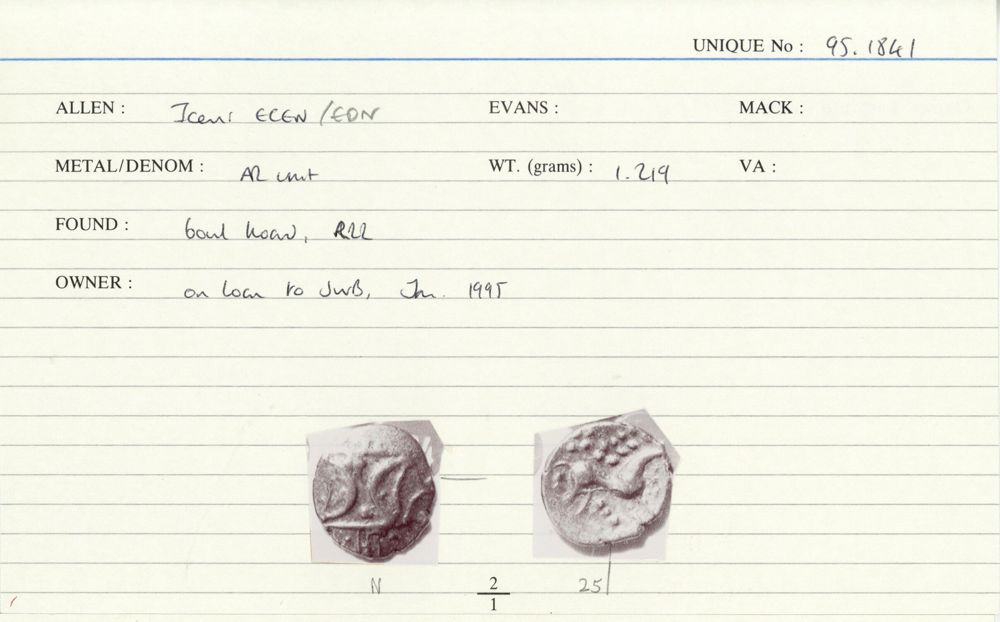 UNIQUE No : 95.1841
ALLEN : Iceni ECEN/EDN EVANS : MACK :
METAL/DENOM : AR unit WT. (grams) : 1.219 VA :
FOUND : bowl hoard, R22
OWNER : on loan to JWB, Jan. 1995
N 2/1 25